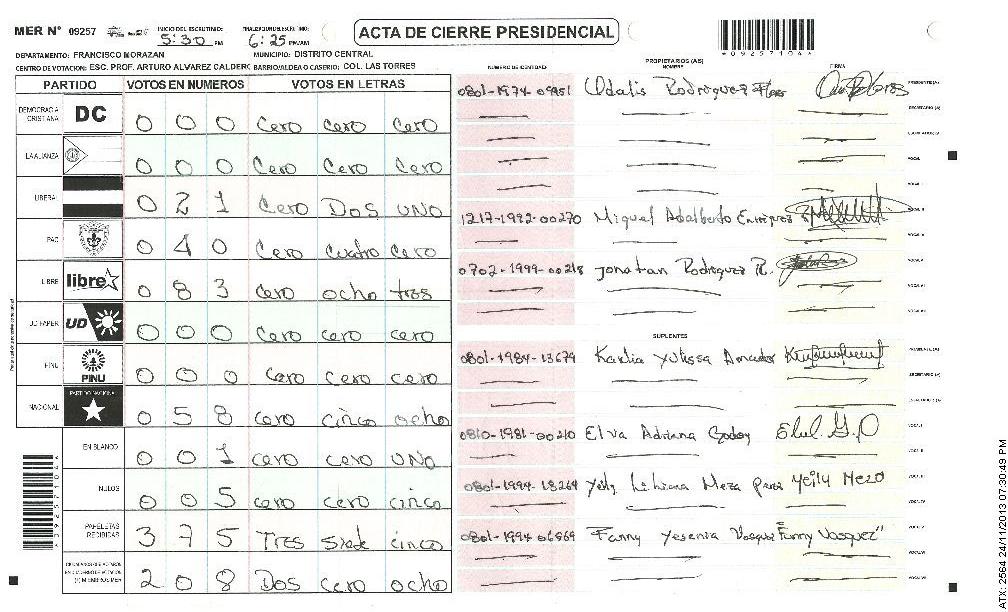 MER N° 09257 INICIO DEL ESCRUTINIO: 5:30 PM 6:25 PM/AM
ACTA DE CIERRE PRESIDENCIAL
*09257104*
DEPARTAMENTO: FRANCISCO MORAZAN MUNICIPIO: DISTRITO CENTRAL
CENTRO DE VOTACION: ESC. PROF. ARTURO ALVAREZ CALDERC BARRIO/ALDEA O CASERIO: COL. LAS TORRES
PARTIDO VOTOS EN NUMEROS VOTOS EN LETRAS
DEMOCRACIA CRISTIANA DC 0 0 0 Cero Cero Cero
LA ALIANZA 0 0 0 Cero Cero Cero
LIBERAL 0 2 1 Cero Dos UNO
PAC 0 4 0 Cero Cuatro Cero
LIBRE libre 0 8 3 Cero ocho tres
UD FAPER UD 0 0 0 Cero cero cero
PINU PINU 0 0 0 Cero cero cero
NACIONAL PARTIDO NACIONAL 0 5 8 cero cinco ocho
EN BLANCO 0 0 1 cero cero UNO
NULOS 0 0 5 cero cero cinco
PAPELETAS RECIBIDAS 3 7 5 Tres siete cinco
2 0 8 Dos cero ocho
NUMERO DE IDENTIDAD PROPIETARIOS (AS) NOMBRE FIRMA
0801-1974-09951 Odalis Rodriguez Flores PRESIDENTE (A)
SECRETARIO (A)
ESCRUTADOR (A)
VOCAL
VOCAL I
1217-1992-00270 Miguel Adalberto Enriquez
0702-1999-00218 Jonatan Rodriguez R.
SUPLENTES
0801-1984-13679 Karlia Yulissa Amador PRESIDENTE (A)
SECRETARIO (A)
0810-1981-00210 Elva Adriana Godoy
0801-1994-18264 Yeily Liliana Meza Yeily Meza
0801-1994-06869 Fanny Yesenia Vasquez Fanny Vasquez
ATX: 2564 24/11/2013 07:30:49 PM